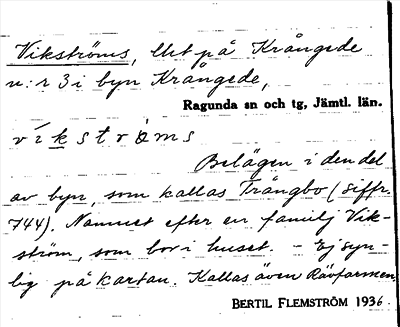 Vikströms, lht på Krångede
n:r 3 i byn Krångede,
Ragunda sn och tg, Jämtl. län.
víkstrǿms
Belägen i den del
av byn, som kallas Trångbo (siffr.
744). Namnet efter en familj Vik-
ström, som bor i huset. – Ej syn-
lig på kartan. Kallas även Rävfarmen.
BERTIL FLEMSTRÖM 1936.